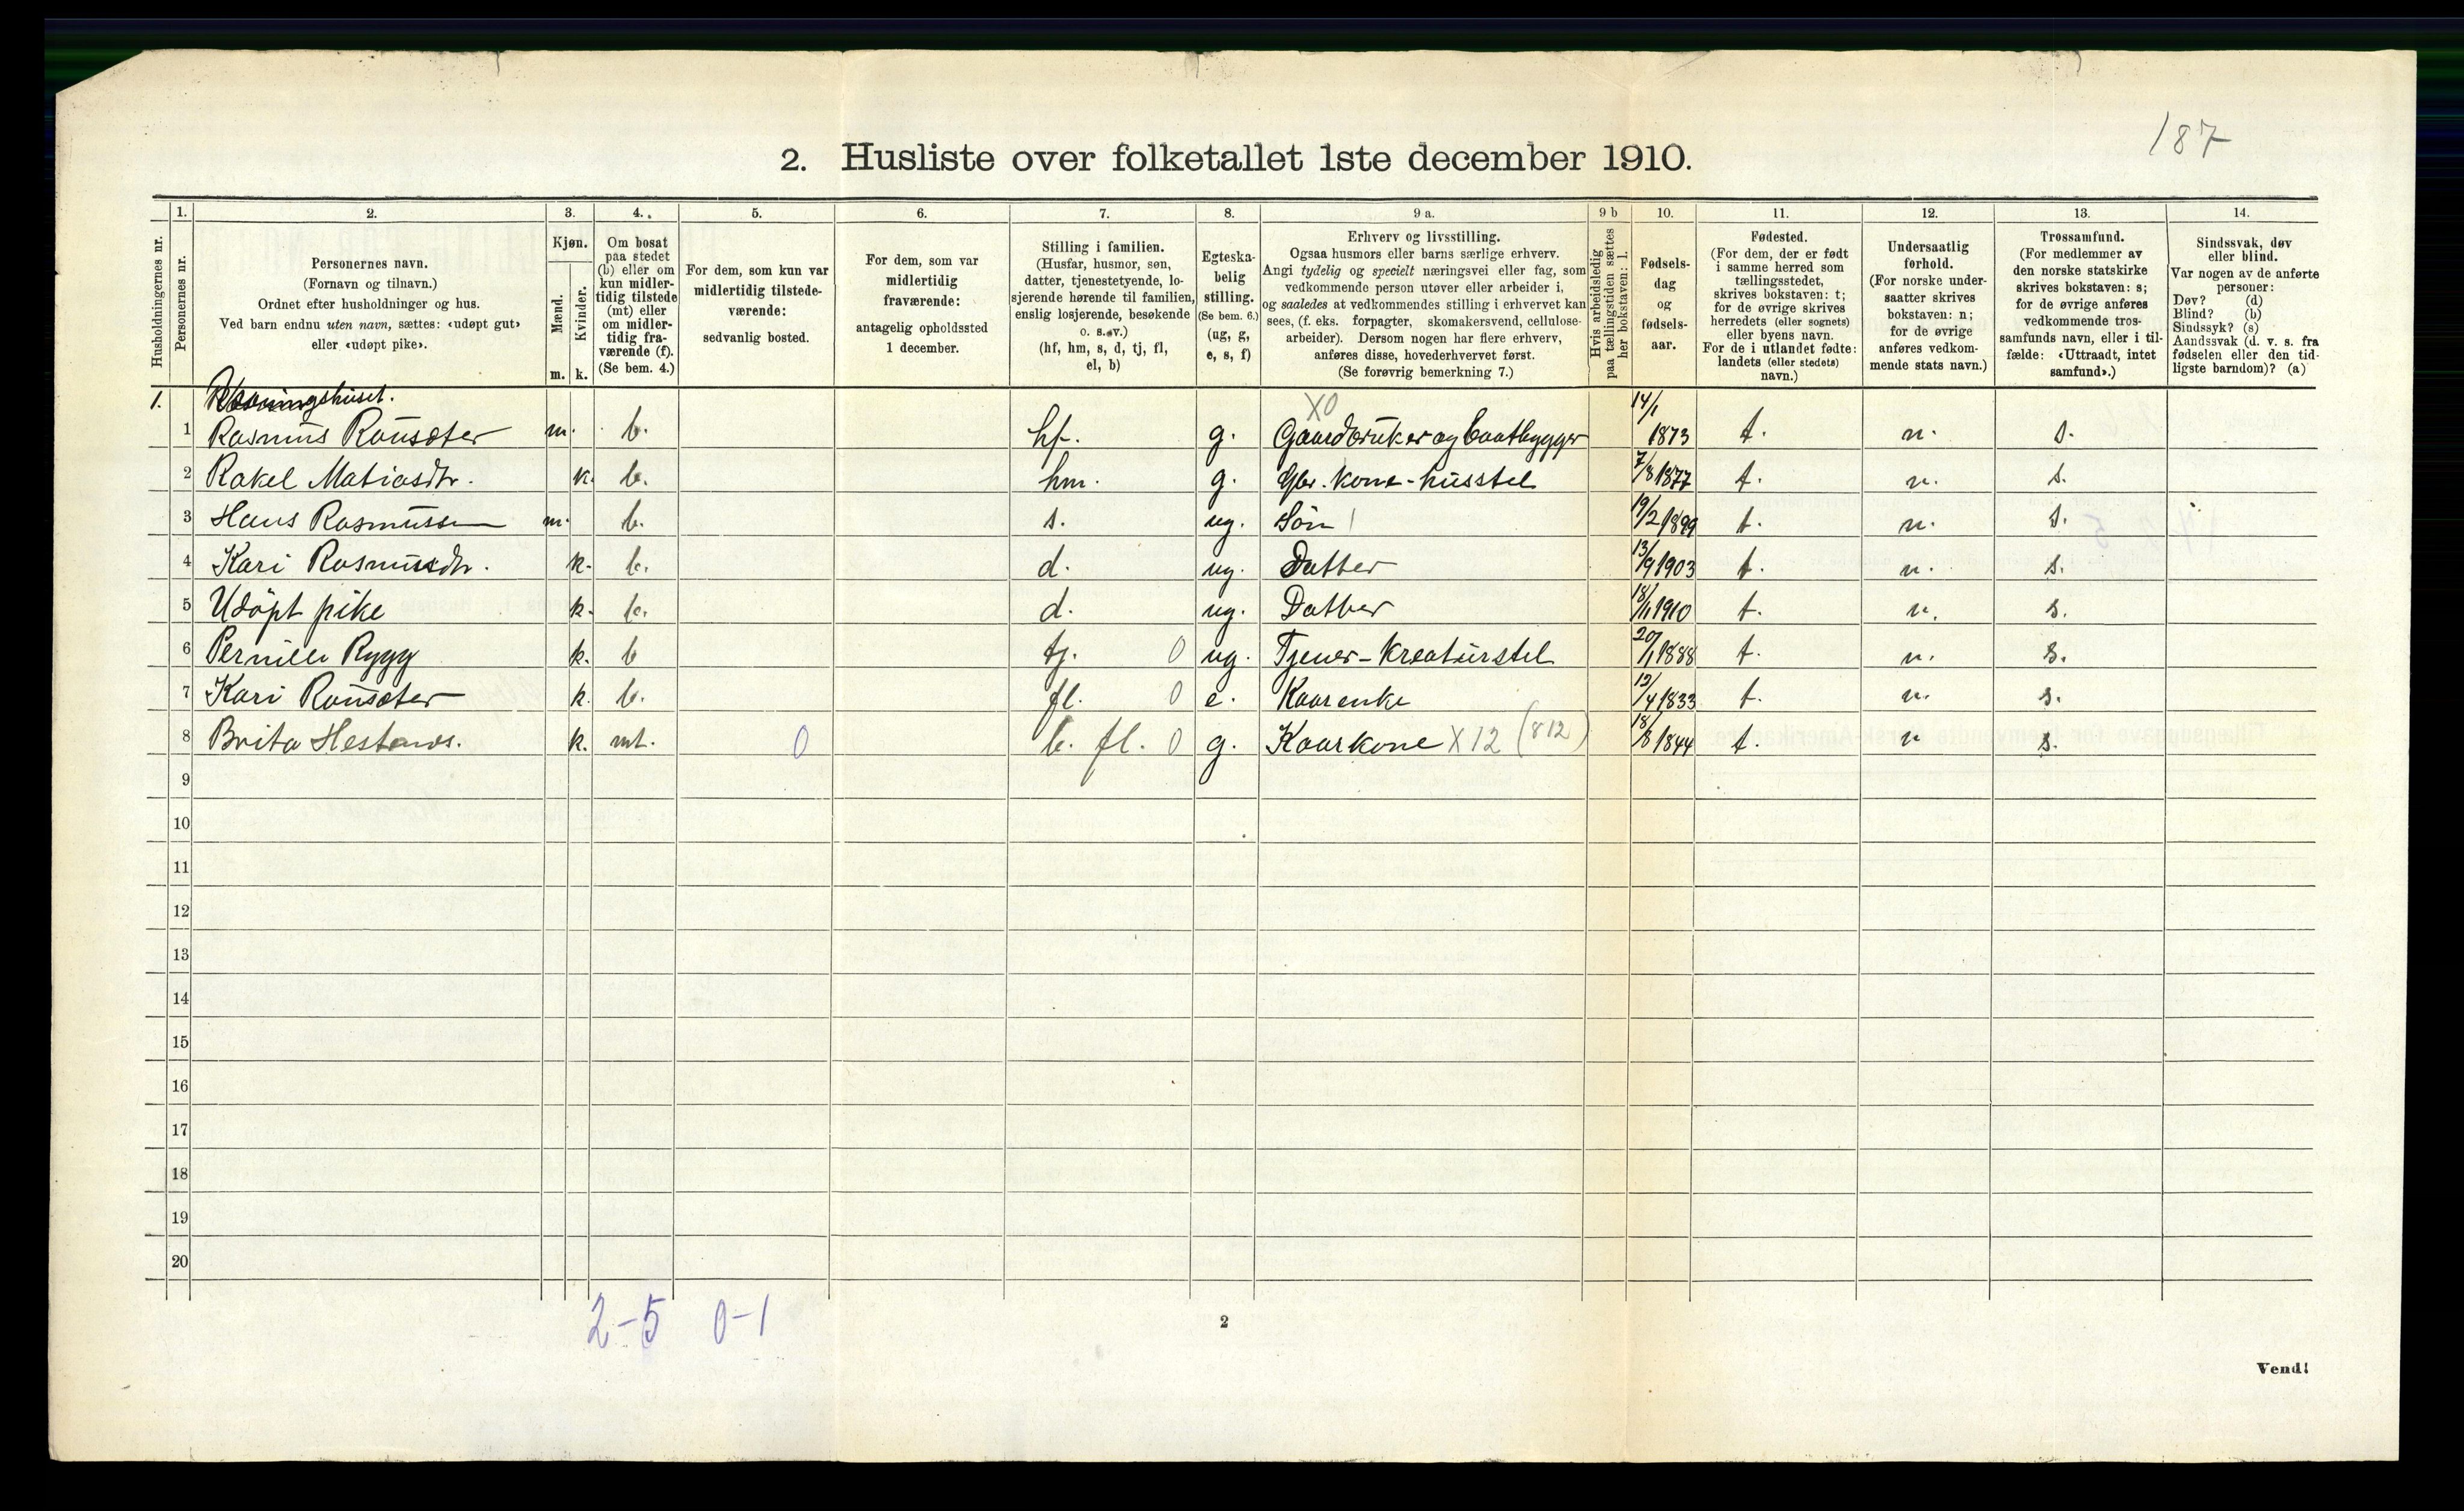 187
2. Husliste over folketallet 1ste december 1910.
Husholdningernes nr.
1.
Personernes nr.
2.
Personernes navn.
(Fornavn og tilnavn.)
Ordnet efter husholdninger og hus.
Ved barn endnu uten navn, sættes: «udøpt gut»
eller «udøpt pike».
3.
Kjøn.
Mænd.
Kvinder.
m. k.
4.
Om bosat
paa stedet
(b) eller om
kun midler-
tidig tilstede
(mt) eller
om midler-
tidig fra-
værende (f).
(Se bem. 4.)
5.
For dem, som kun var
midlertidig tilstede-
værende:
sedvanlig bosted.
6.
For dem, som var
midlertidig
fraværende:
antagelig opholdssted
1 december.
7.
Stilling i familien.
(Husfar, husmor, søn,
datter, tjenestetyende, lo-
sjerende hørende til familien,
enslig losjerende, besøkende
o. s. v.)
(hf, hm, s, d, tj, fl,
el, b)
8.
Egteska-
belig
stilling.
(Se bem. 6.)
(ug, g,
e, s, f)
9 a.
Erhverv og livsstilling.
Ogsaa husmors eller barns særlige erhverv.
Angi tydelig og specielt næringsvei eller fag, som
vedkommende person utøver eller arbeider i,
og saaledes at vedkommendes stilling i erhvervet kan
sees, (f. eks. forpagter, skomakersvend, cellulose-
arbeider). Dersom nogen har flere erhverv,
anføres disse, hovederhvervet først.
(Se forøvrig bemerkning 7.)
9 b
Hvis arbeidsledig
paa tællingstiden sættes
her bokstaven: l.
10.
Fødsels-
dag
og
fødsels-
aar.
11.
Fødested.
(For dem, der er født
i samme herred som
tællingsstedet,
skrives bokstaven: t;
for de øvrige skrives
herredets (eller sognets)
eller byens navn.
For de i utlandet fødte:
landets (eller stedets)
navn.)
12.
Undersaatlig
forhold.
(For norske under-
saatter skrives
bokstaven: n;
for de øvrige
anføres vedkom-
mende stats navn.)
13.
Trossamfund.
(For medlemmer av
den norske statskirke
skrives bokstaven: s;
for de øvrige anføres
vedkommende tros-
samfunds navn, eller i til-
fælde: «Uttraadt, intet
samfund».)
14.
Sindssvak, døv
eller blind.
Var nogen av de anførte
personer:
Døv? (d)
Blind? (b)
Sindssyk? (s)
Aandssvak (d. v. s. fra
fødselen eller den tid-
ligste barndom)? (a)
1.
X0
1 Rasmus Rousæter m. b. hf. g. Gaardbruker og baatbygger 14/1 1873 t. n. s.
2 Rakel Matiasdtr. k. b. hm. g. Gbr. kone - husstel 7/8 1877 t. n. s.
3 Hans Rasmussen m. b. s. ug. Søn 19/2 1899 t. n. s.
4 Kari Rasmusdtr. k. b. d. ug. Datter 13/9 1903 t. n. s.
5 Udöpt pike k. b. d. ug. Datter 18/11 1910 t. n. s.
6 Pernille Rygg k. b tj. 0 ug. Tjener - kreaturstel 20/1 1888 t. n. s.
7 Kari Rousæter k. b. fl. 0 e. Kaarenke 12/4 1833 t. n. s.
8 Brita Hestenes. k. mt. 0 b. fl. 0 g. Kaarkone X 12 (812) 18/8 1844 t. n s.
9
10
11
12
13
14
15
16
17
18
19
20
2-5 0-1
2
Vend!